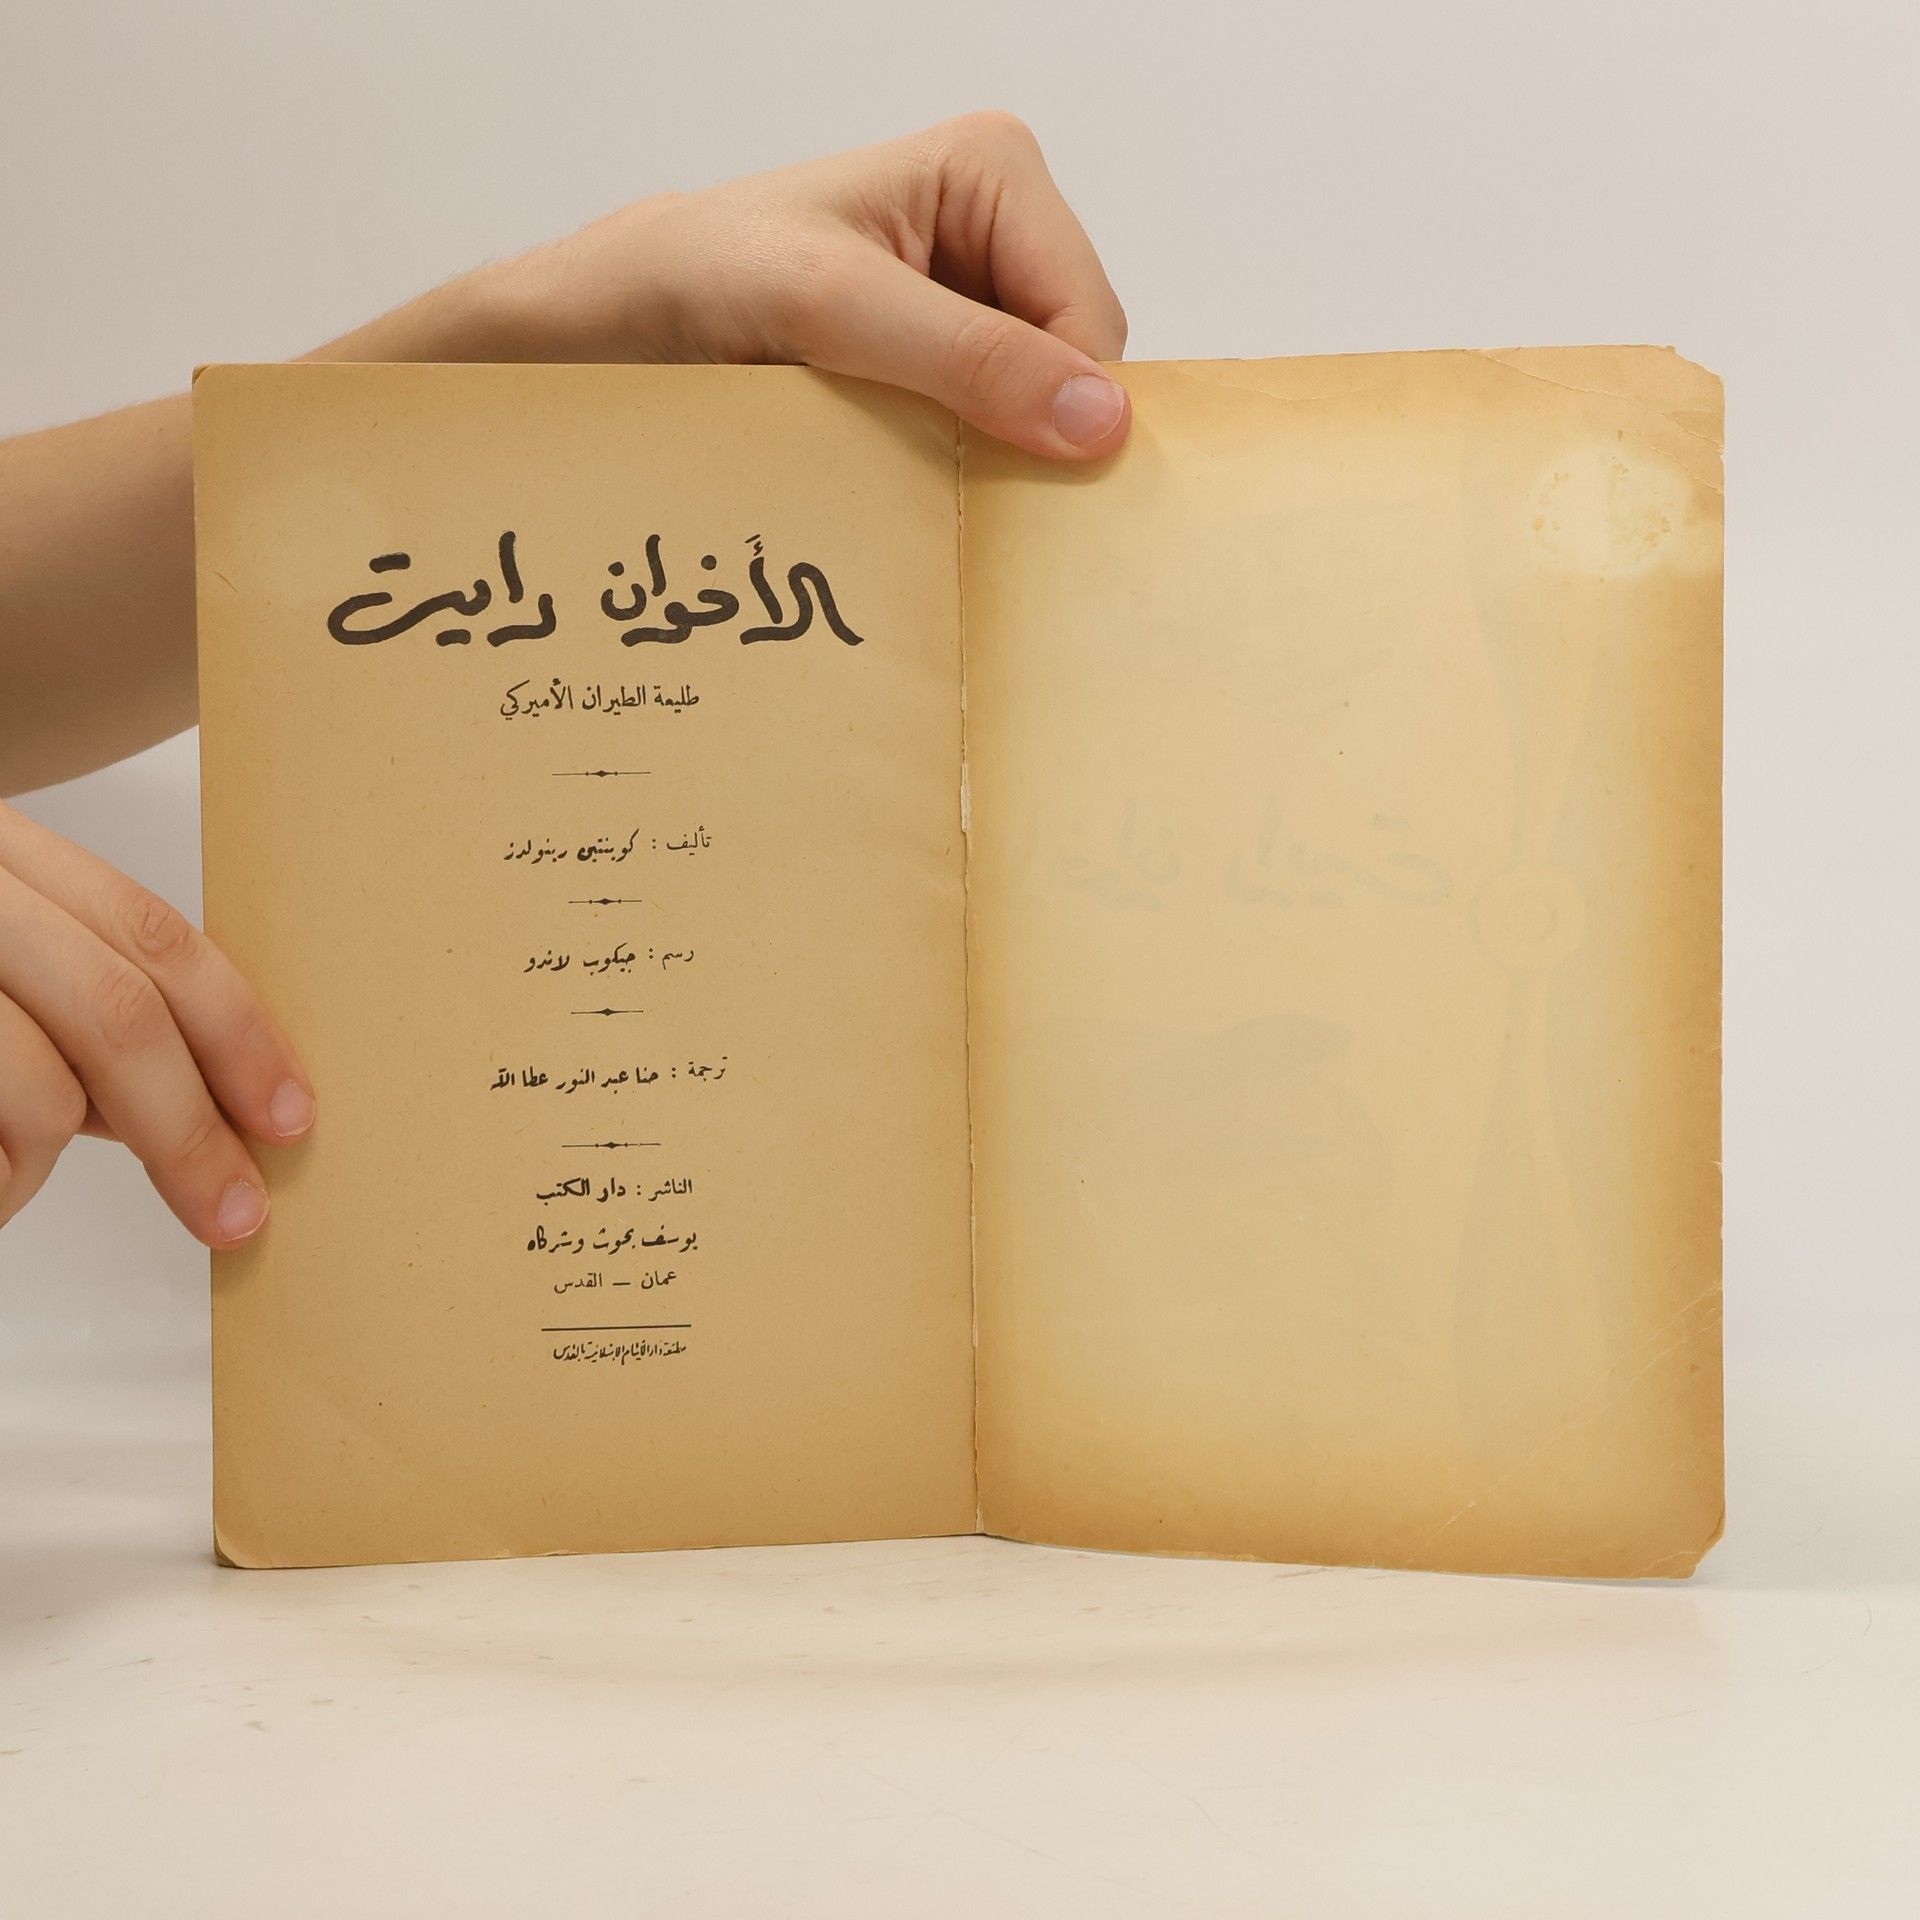 الأَخوان رايت
طليعة الطيران الأميركي
تأليف : كوينتين رينولدز
رسم : جيكوب لاندو
ترجمة : حنا عبد النور عطا الله
الناشر : دار الكتب
يوسف بحوث وشركاه
عمان — القدس
مطبعة دار الأيتام الإسلامية بالقدس